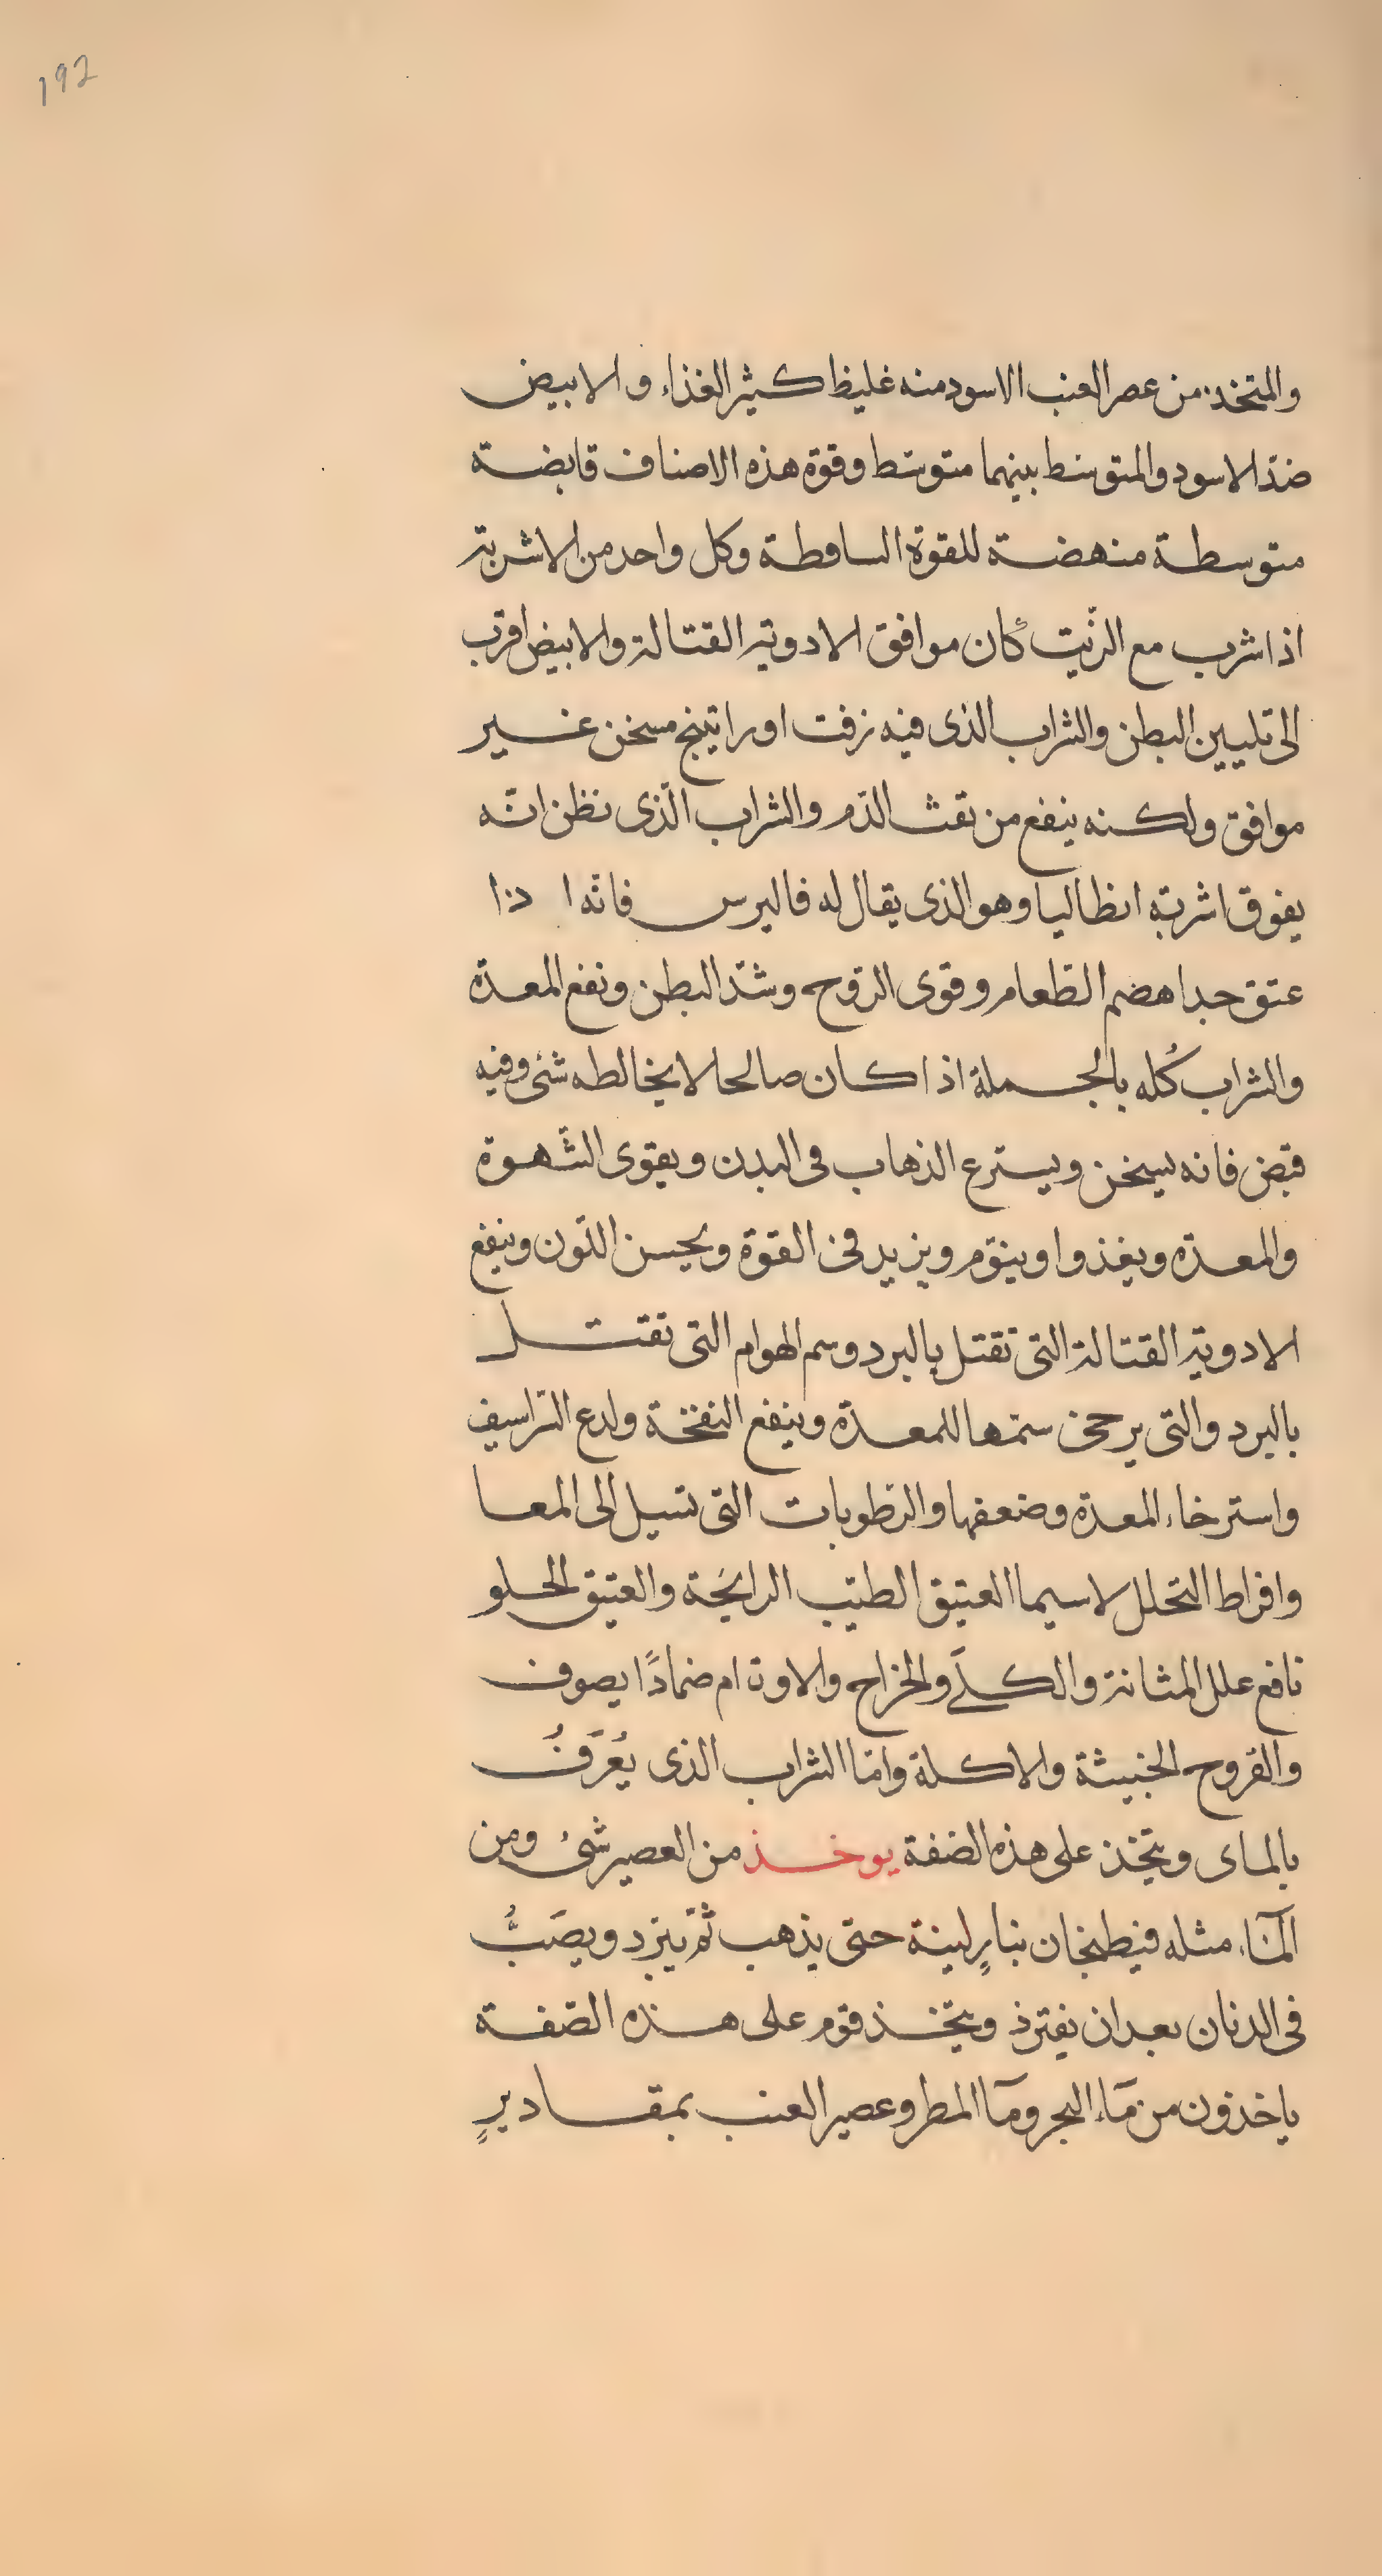 192
والمتخذ من عصر العنب الاسود منه غليظ كثير الغذاء والابيض
ضد الاسود والمتوسط بينهما متوسّط وقوة هذه الاصناف قابضة
متوسطة منهضة للقوة الساقطة وكل واحد من الاشربة
اذا شرب مع الزّيت كان موافق الادوية القتالة والابيض اقرب
الى تليين البطن والشراب الذى فيه زفت او راتينج مسخن غير
موافق ولكنه ينفع من نفث الدّم والشراب الّذى نظن انّه
يفوق اشربة انطاليا وهو الذى يقال له فاليرس فانّه ا ذا
عتق جدا هضم الطّعام وقوى الرّوح وشدّ البطن ونفع المعدة
والشراب كُله بالجملة اذا كان صالحا لا يخالطه شئ وفيه
قبض فانه يسخن ويسرع الذهاب فى البدن ويقوى الشّهوة
والمعدة ويغذوا وينوّم ويزيد فى القوة ويحسن اللّون وينفع
الادوية القتالة التى تقتل بالبرد وسم الهوام التى تقتل
بالبرد والتى يرخى سمّها للمعدة وينفع النفخة ولدع الشّراسيف
واسترخاء المعدة وضعفها والرّطوبات التى تسيل الى المعا
وافراط التحلل لا سيما العتيق الطيّب الرايحَة والعتيق الحلو
نافع علل المثانة والكلَى والخراج والاورام ضمادًا بصوف
والقروح الخبيثة والاكلة وامّا الشراب الذى يُعْرَفُ
بالماى ويتّخذ على هذه الصّفة يوخذ من العصير شئ ومن
المآء مثله فيطبخان بنارٍ لينة حتى يذهب ثمّ يبرد ويصَبُّ
فى الدنان بعد ان يفترد ويتّخذ قوم على هذه الصّفة
ياخذون من مآء البحر ومآ المطر وعصير العنب بمقاديرٍ